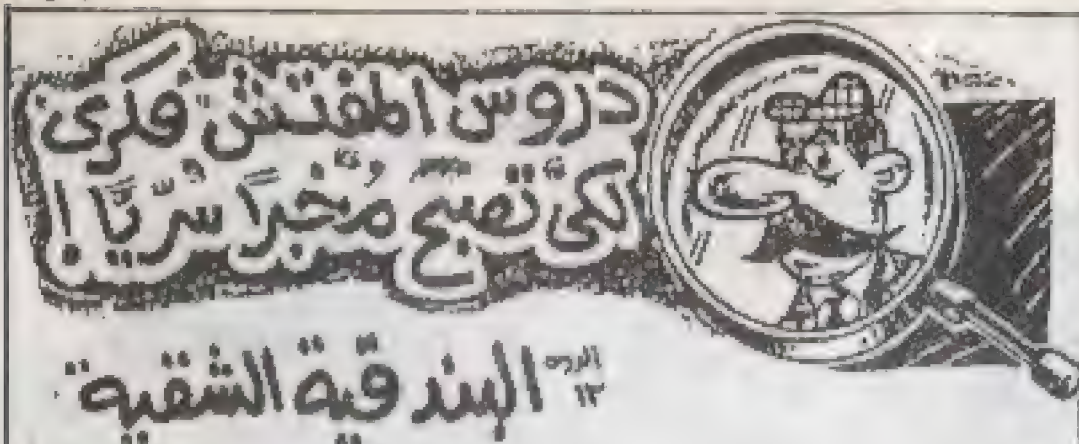 دروس المفتش فكرى
لكى تصبح مُخبرًا سّريًّا!
الدرس ١٣
البندقية الشقية